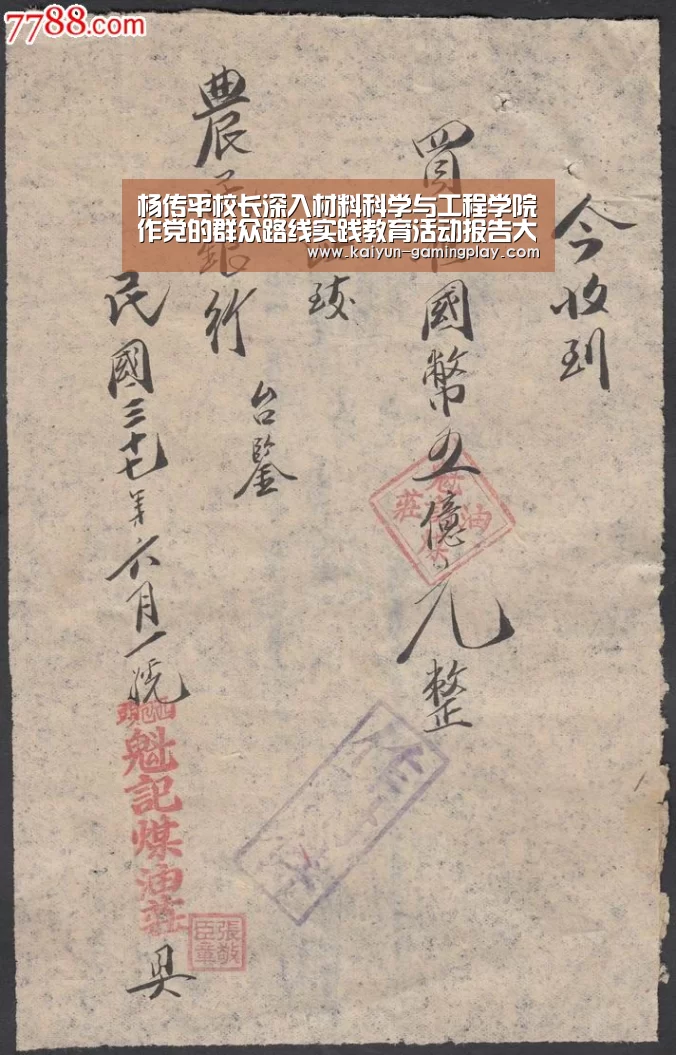 7788.com
杨传平校长深入材料科学与工程学院
作党的群众路线实践教育活动报告大
www.kaiyun-gamingplay.com
今收到
買 國幣五億元整
致
農 銀行
台鑒
民國三十七年六月一號
魁記煤油莊
張敬臣章
具
油
莊